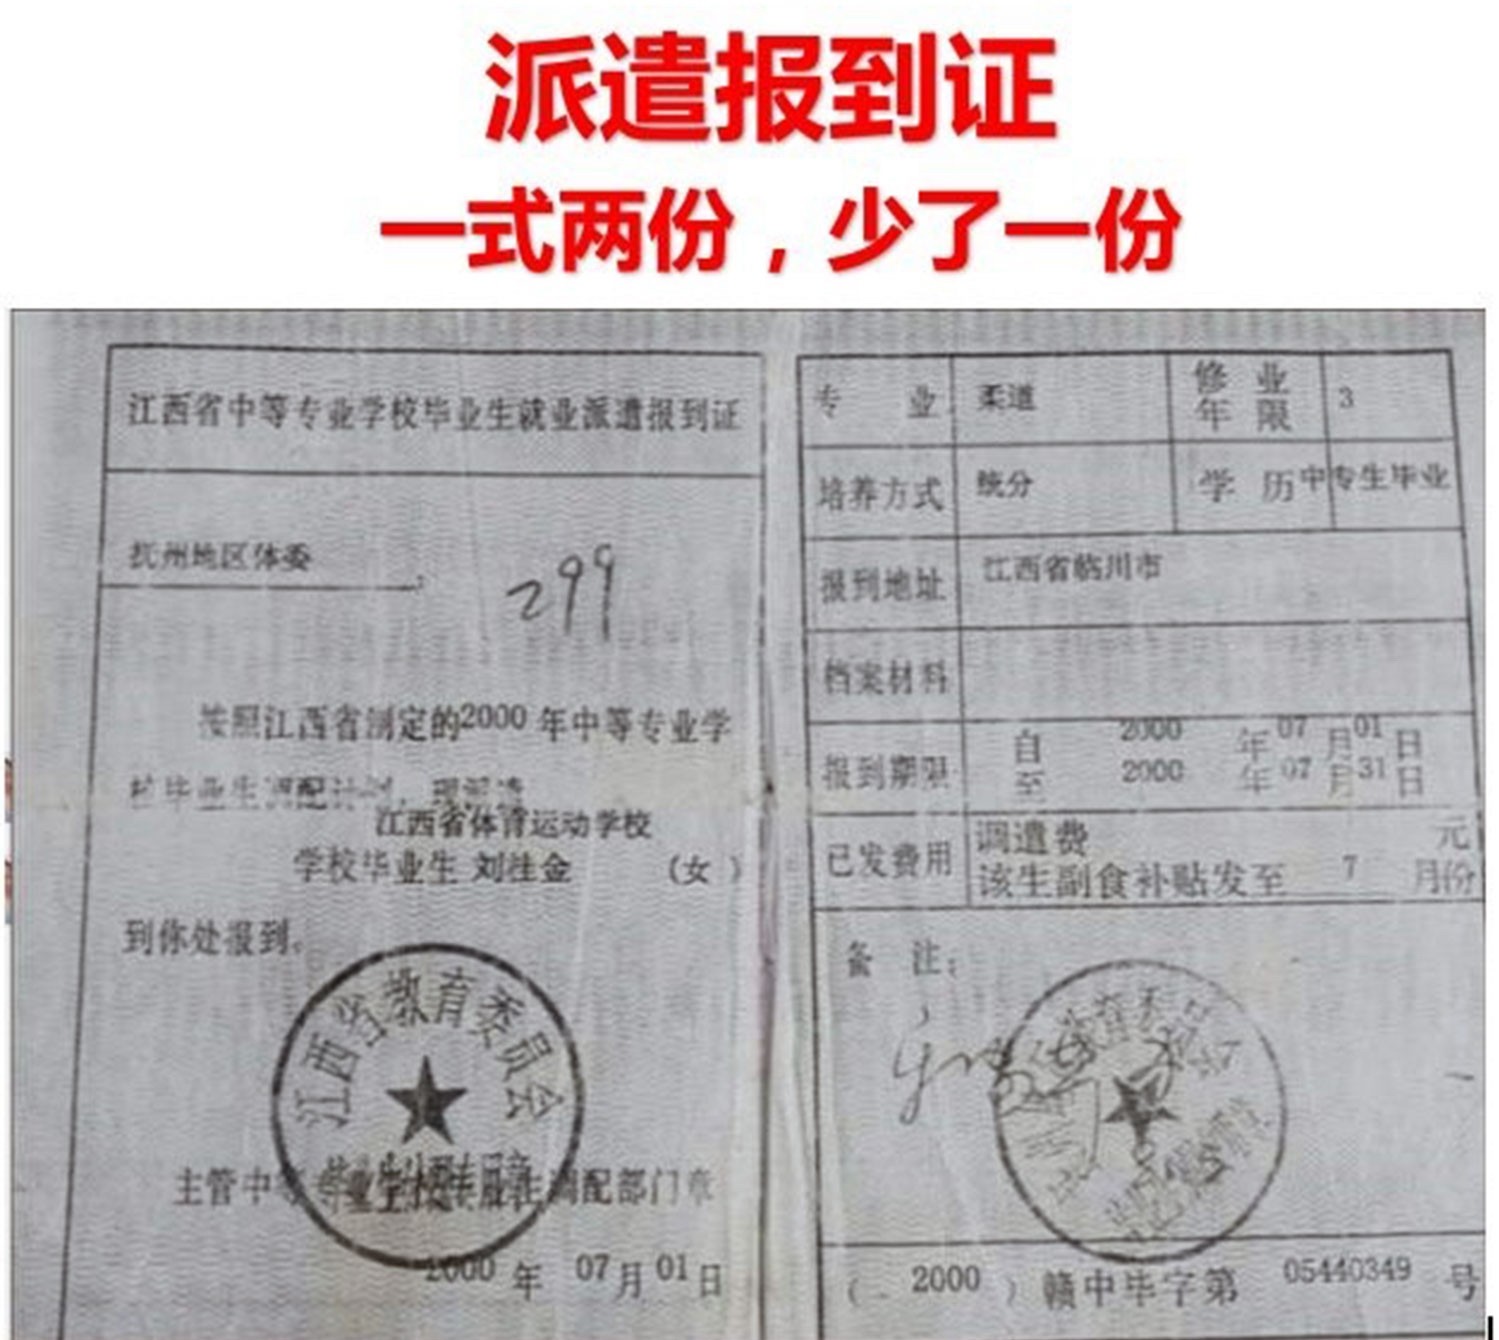 派遣报到证
一式两份，少了一份
江西省中等专业学校毕业生就业派遣报到证
抚州地区体委，
299
按照江西省制定的2000年中等专业学
校毕业生调配计划，现派遣
江西省体育运动学校
学校毕业生 刘洼金 （女）
到你处报到。
江西省教育委员会
主管中等专业学校毕业生调配部门章
2000年 07月01日
专业 柔道 修业年限 3
培养方式 统分 学历 中专生毕业
报到地址 江西省临川市
档案材料
报到期限 自 2000 年07月01日
至 2000 年07月31日
已发费用 调遣费 元
该生副食补贴发至 7 月份
备注：
（2000）赣中毕字第 05440349 号